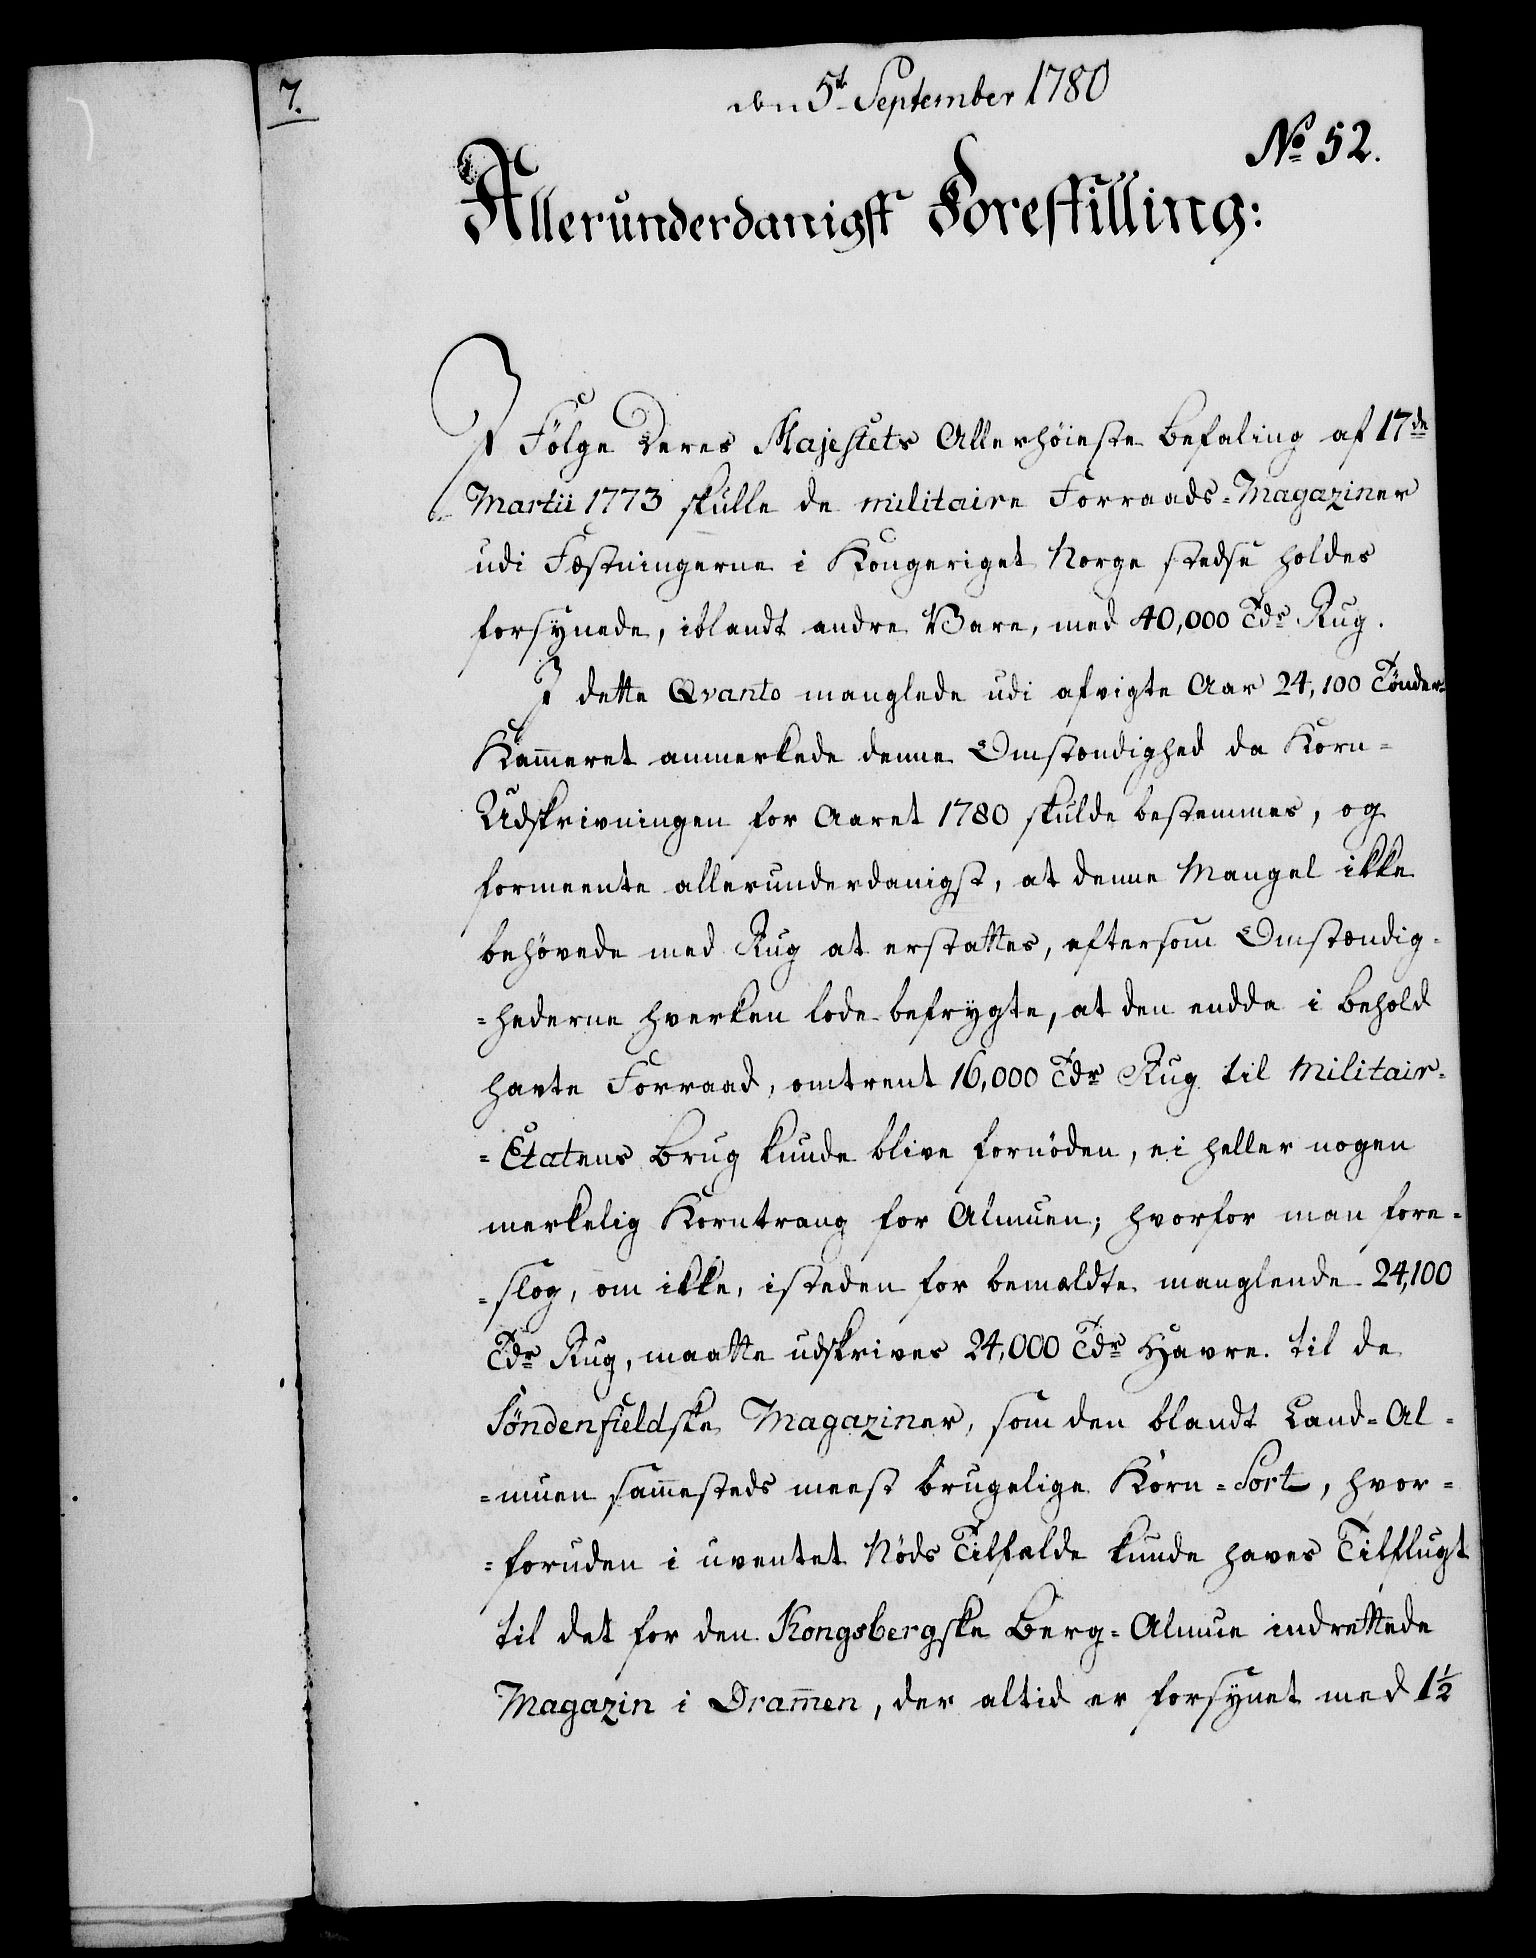 7.
den 5t September 1780
No 52.
Allerunderdanigst Forestilling:
I Følge Deres Majestets Allerhøieste Befaling af 17de
Martii 1773 skulle de militaire Forraads-Magaziner
udi Fæstningerne i Kongeriget Norge stedse holdes
forsynede, iblandt andre Vare, med 40,000 Tdr Rug.
I dette Qvanto manglede udi afvigte Aar 24,100 Tønder
Kammeret anmerkede denne Omstændighed da Korn-
Udskrivningen for Aaret 1780 skulde bestemmes, og
formeente allerunderdanigst, at denne Mangel ikke
behøvede med Rug at erstattes, eftersom Omstændig-
-hederne hverken lode befrygte, at den endda i behold
havte Forraad, omtrent 16,000 Tdr Rug til Militair-
-Etatens Brug kunde blive fornøden, ei heller nogen
merkelig Korntrang for Almuen; hvorfor man fore-
-slog, om ikke, isteden for bemældte manglende 24,100
Tdr Rug, maatte udskrives 24,000 Tdr Havre til de
Søndenfieldske Magaziner, som den blandt Land-Al-
-muen sammesteds meest brugelige Korn-Sort, hvor-
-foruden i uventet Nøds Tilfælde kunde haves Tilflugt
til det for den Kongsbergske Berg-Almue indrettede
Magazin i Drammen, der altid er forsynet med 1½